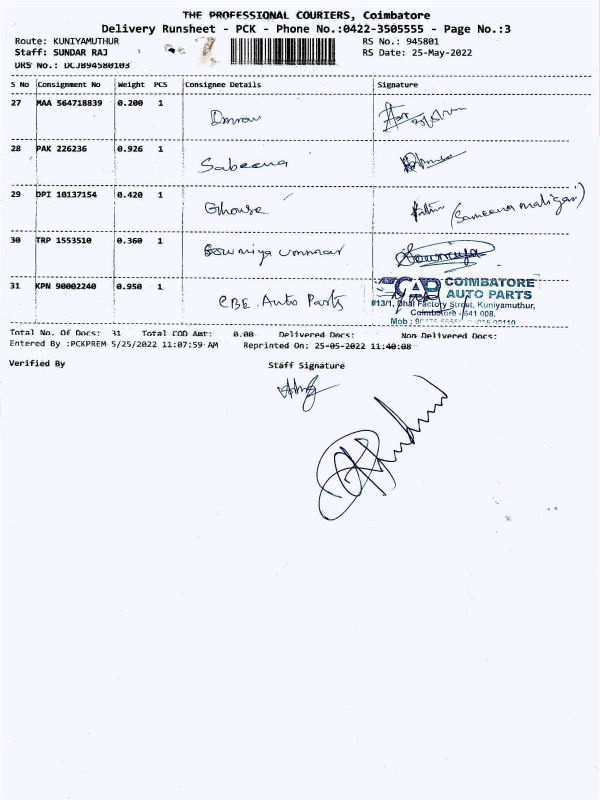 THE PROFESSIONAL COURIERS, Coimbatore
Delivery Runsheet - PCK - Phone No.:0422-3505555 - Page No.:3
Route: KUNIYAMUTHUR RS No.: 945801
Staff: SUNDAR RAJ RS Date: 25-May-2022
DRS No.: DCJB94580103
S No Consignment No Weight PCS Consignee Details Signature
27 MAA 564718839 0.200 1
28 PAK 226236 0.926 1 Sabeena
29 DPI 10137154 0.420 1 Ghouse (Sameena maligai)
30 TRP 1553510 0.360 1 Sowmiya Sowmiya
31 KPN 90002240 0.950 1 CBE. Auto Parts
CAP COIMBATORE
AUTO PARTS
#13/1, Dhal Factory Street, Kuniyamuthur,
Coimbatore - 641 008.
Mob :
Total No. Of Docs: 31 Total COD Amt: 0.00 Delivered Docs: Non Delivered Docs:
Entered By :PCKPREM 5/25/2022 11:07:59 AM Reprinted On: 25-05-2022 11:40:08
Verified By Staff Signature